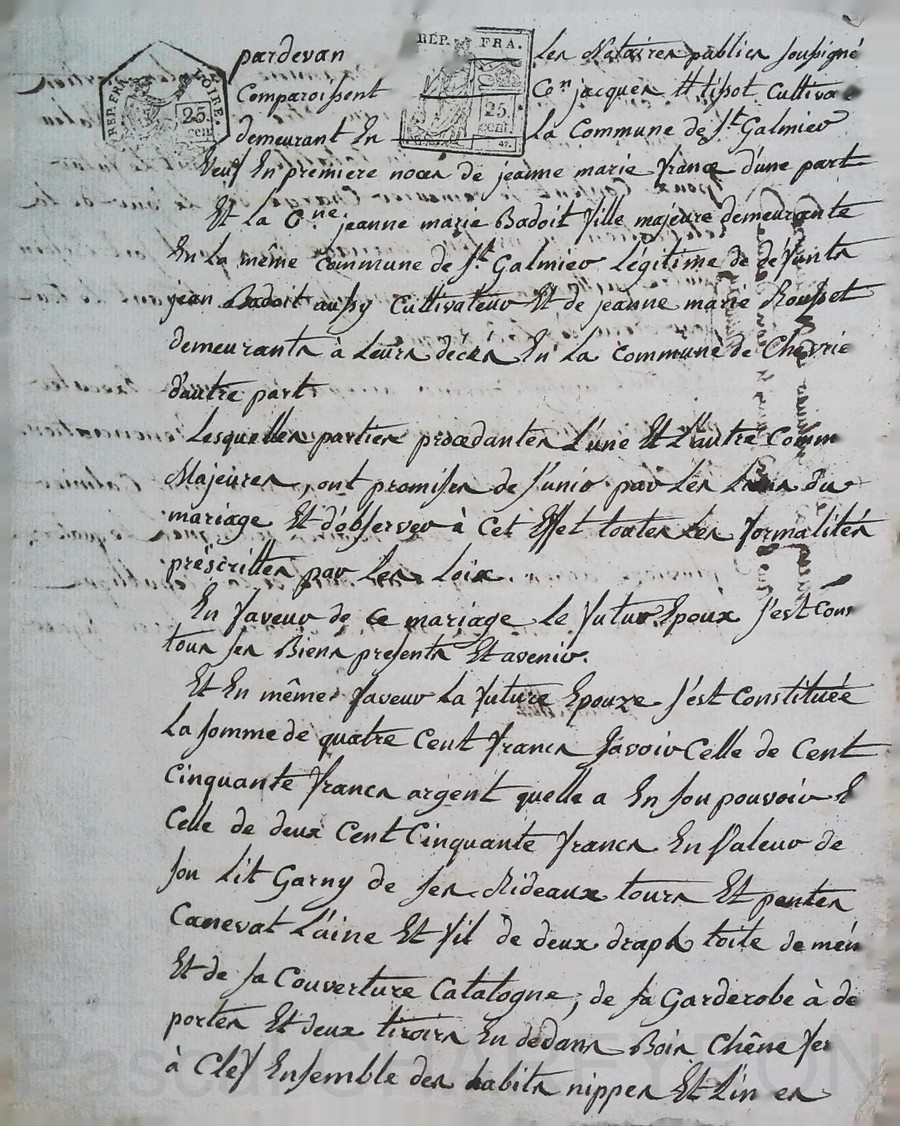 pardevan Les Notaires publics soussigné
Comparoissent Cen jacques tissot Cultiva
demeurant En La Commune de St Galmier
Veuf En premiere noces de jeanne marie france d'une part
Et La Cne jeanne marie Badoit fille majeure demeurante
En La même Commune de St Galmier Légitime de défunts
jean Badoit aussy Cultivateur Et de jeanne marie Rousset
demeurants à Leurs décès En La Commune de Chevrie
d'autre part
Lesquelles parties procedantes L'une Et L'autre Comm
Majeures, ont promises de s'unir par Les Liens du
mariage Et d'observer à Cet Effet toutes Les formalités
préscrittes par Les Loix.
En faveur de ce mariage Le futur Epoux s'est Cons
tous ses Biens presents Et avenir.
Et En même faveur La future Epouze s'est Constituée
La somme de quatre Cent francs savoir Celle de Cent
Cinquante francs argent quelle a En son pouvoir E
Celle de deux Cent Cinquante francs En Valeur de
son Lit Garny de ses Rideaux tours Et pentes
Canevat Laine Et fil de deux draps toile de mén
Et de sa Couverture Catalogne, de sa Garderobe à de
portes Et deux tiroirs En dedans Bois Chêne fer
à Clef Ensemble des habits nippes Et Lin es
REP. FRA. LOIRE.
25 cent
REP. FRA.
25 cent.
47.
Pascal CHAREYRON